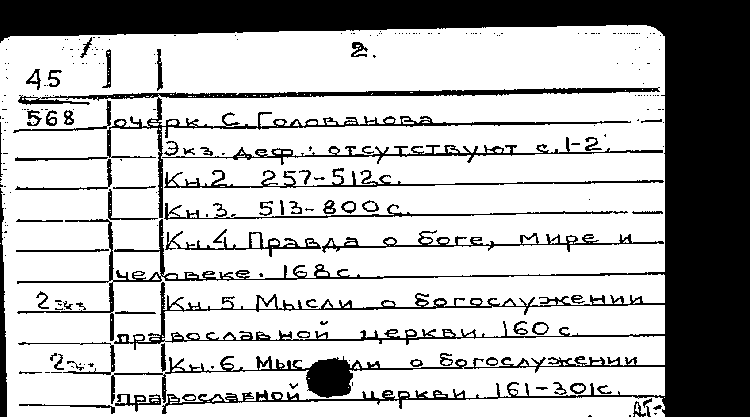 2.
45
568 очерк. С. Голованова.
Экз. деф.: отсутствуют с. 1-2.
Кн. 2. 257-512 с.
Кн. 3. 513-800 с.
Кн. 4. Правда о боге, мире и
человеке. 168 с.
2 экз Кн. 5. Мысли о богослужении
православной церкви. 160 с.
2 экз. Кн. 6. Мысли о богослужении
православной церкви. 161-301 с.